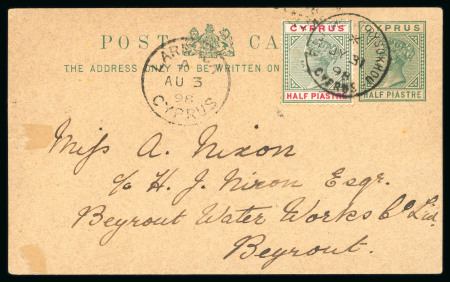 POST CARD
THE ADDRESS ONLY TO BE WRITTEN ON
CYPRUS
HALF PIASTRE
CYPRUS
HALF PIASTRE
LARNACA
A
AU 3
98
CYPRUS
JY 31
98
CYPRUS
Miss A. Nixon
c/o H. J. Nixon Esqr.
Beyrout Water Works Co Ltd.
Beyrout.